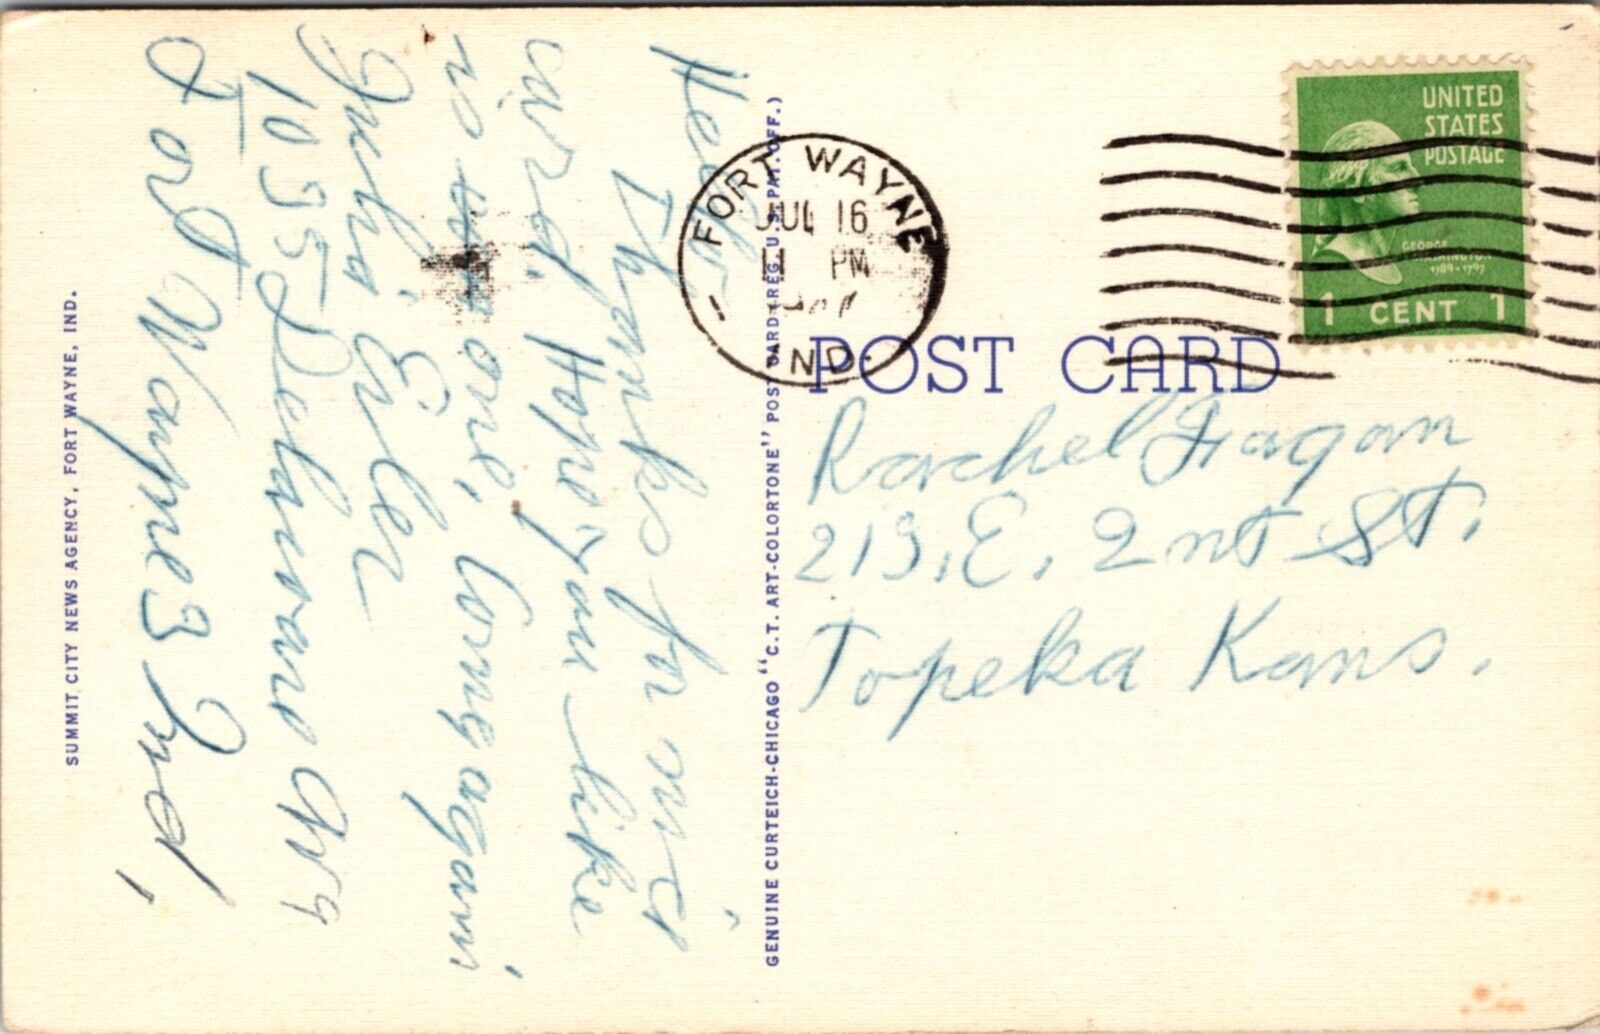 Hello,
Thanks for nice
card. Hope you like
no one, Come again
Julia Eiler
1035 Delaware Av
Fort Wayne 3 Ind,
SUMMIT CITY NEWS AGENCY, FORT WAYNE, IND.
GENUINE CURTEICH-CHICAGO "C.T. ART-COLORTONE" POST CARD (REG. U.S. PAT. OFF.)
FORT WAYNE
JUL 16
11 PM
IND.
UNITED
STATES
POSTAGE
GEORGE
WASHINGTON
1789-1797
1 CENT 1
POST CARD
Rachel Fagan
219, E, 2nd St.
Topeka Kans.